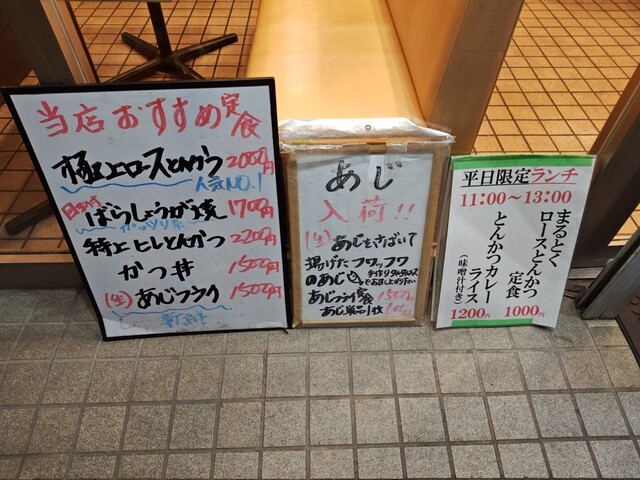 当店おすすめ定食
極上ロースとんかつ 2000円
人気NO.1
ばらしょうが焼 1700円
ガッツリ系
特上ヒレとんかつ 2200円
かつ丼 1500円
(生)あじフライ 1500円
あじ
入荷!!
(生)あじをさばいて
揚げたフワッフワ
のあじ
手作りタルタルソース
でお召し上がり下さい
あじフライ定食 1500円
あじ単品1枚
平日限定ランチ
11:00〜13:00
まるとく
ロースとんかつ
定食
1000円
とんかつカレー
ライス
(味噌汁付き)
1200円